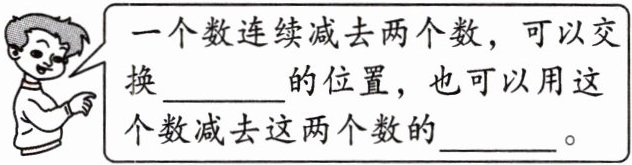 一个数连续减去两个数，可以交
换________的位置，也可以用这
个数减去这两个数的________。